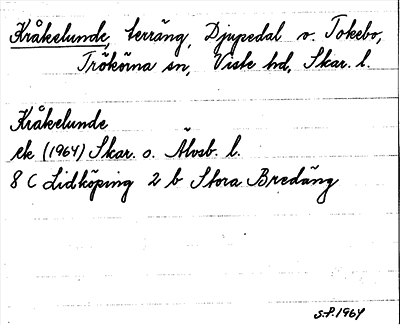 Kråkelunde, terräng, Djupedal o. Tokebo,
Trökörna sn, Viste hd, Skar. l.
Kråkelunde
ek (1964) Skar. o. Älvsb. l.
8 C Lidköping 2 b Stora Bredäng
S.P. 1964